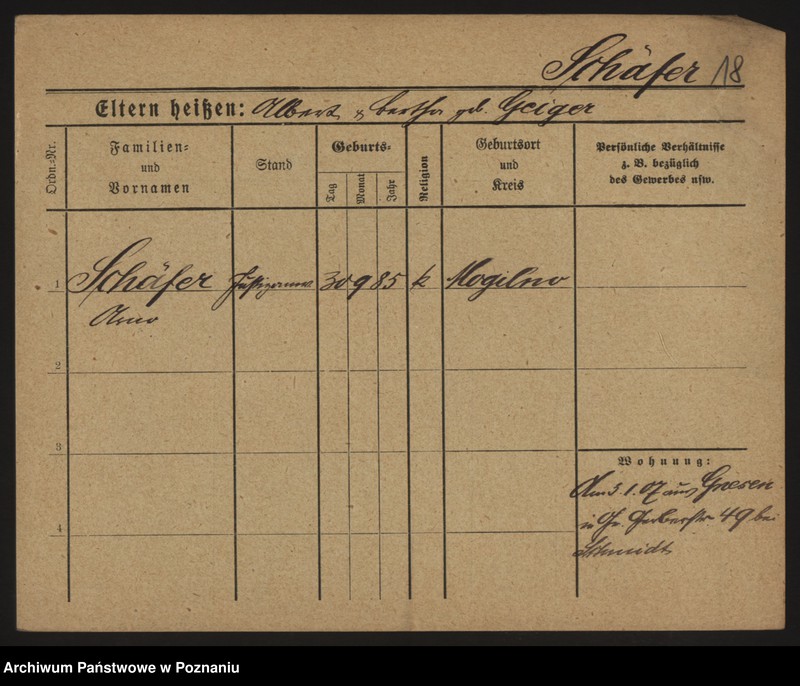 Schäfer 18
Eltern heißen: Albert & Bertha geb. Geiger
Ordn.-Nr.
Familien-
und
Vornamen
Stand
Geburts-
Tag
Monat
Jahr
Religion
Geburtsort
und
Kreis
Persönliche Verhältnisse
z. B. bezüglich
des Gewerbes usw.
1 Schäfer 30 9 85 k Mogilno
Arno
2
3
4
Wohnung:
Am 3.1.07 aus Gnesen
in Gr. Gerberstr 49 bei
Schmidt
Archiwum Państwowe w Poznaniu